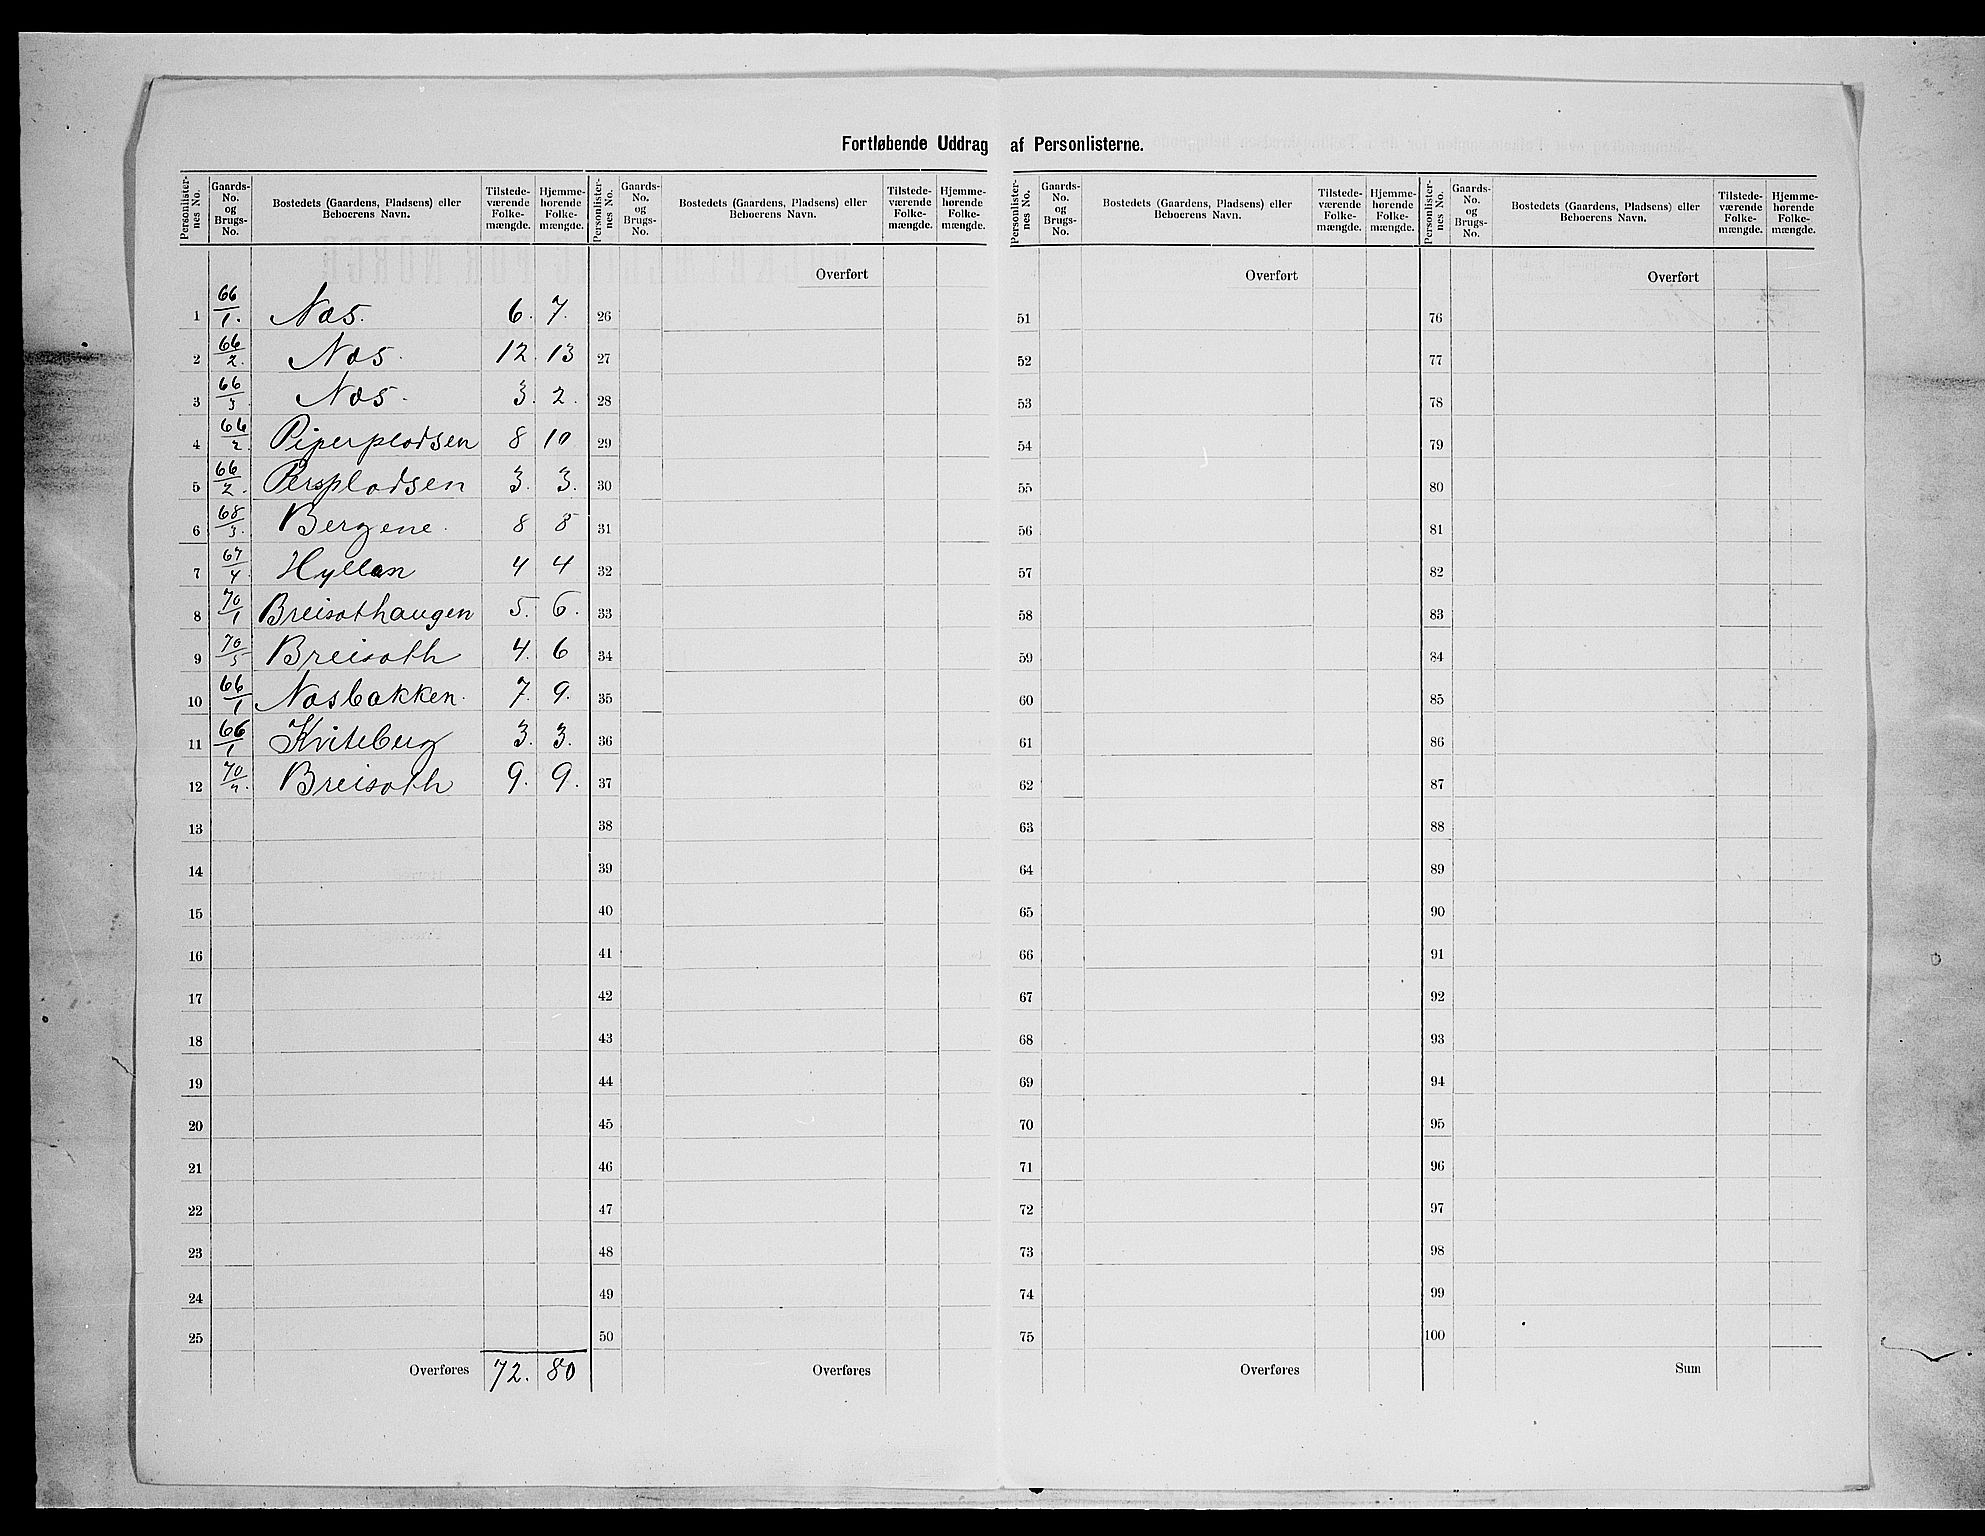 Fortløbende Uddrag af Personlisterne.
Personlister-nes No. | Gaards-No. og Brugs-No. | Bostedets (Gaardens, Pladsens) eller Beboerens Navn. | Tilstede-værende Folke-mængde. | Hjemme-hørende Folke-mængde. | Personlister-nes No. | Gaards-No. og Brugs-No. | Bostedets (Gaardens, Pladsens) eller Beboerens Navn. | Tilstede-værende Folke-mængde. | Hjemme-hørende Folke-mængde. | Personlister-nes No. | Gaards-No. og Brugs-No. | Bostedets (Gaardens, Pladsens) eller Beboerens Navn. | Tilstede-værende Folke-mængde. | Hjemme-hørende Folke-mængde. | Personlister-nes No. | Gaards-No. og Brugs-No. | Bostedets (Gaardens, Pladsens) eller Beboerens Navn. | Tilstede-værende Folke-mængde. | Hjemme-hørende Folke-mængde.
Overført Overført Overført
1 66/1. Næs. 6. 7. 26 51 76
2 66/2. Næs. 12. 13 27 52 77
3 66/3. Næs. 3. 2. 28 53 78
4 66/2. Piperpladsen 8 10 29 54 79
5 66/2. Perspladsen 3. 3. 30 55 80
6 68/3. Bergene. 8 8 31 56 81
7 67/4. Hyllan 4 4 32 57 82
8 70/1 Breisathaugen 5. 6. 33 58 83
9 70/5 Breisath 4. 6 34 59 84
10 66/1 Næsbakken. 7. 9. 35 60 85
11 66/1 Kviteberg 3. 3. 36 61 86
12 70/ Breisath 9. 9. 37 62 87
13 38 63 88
14 39 64 89
15 40 65 90
16 41 66 91
17 42 67 92
18 43 68 93
19 44 69 94
20 45 70 95
21 46 71 96
22 47 72 97
23 48 73 98
24 49 74 99
25 50 75 100
Overføres 72. 80 Overføres Overføres Sum